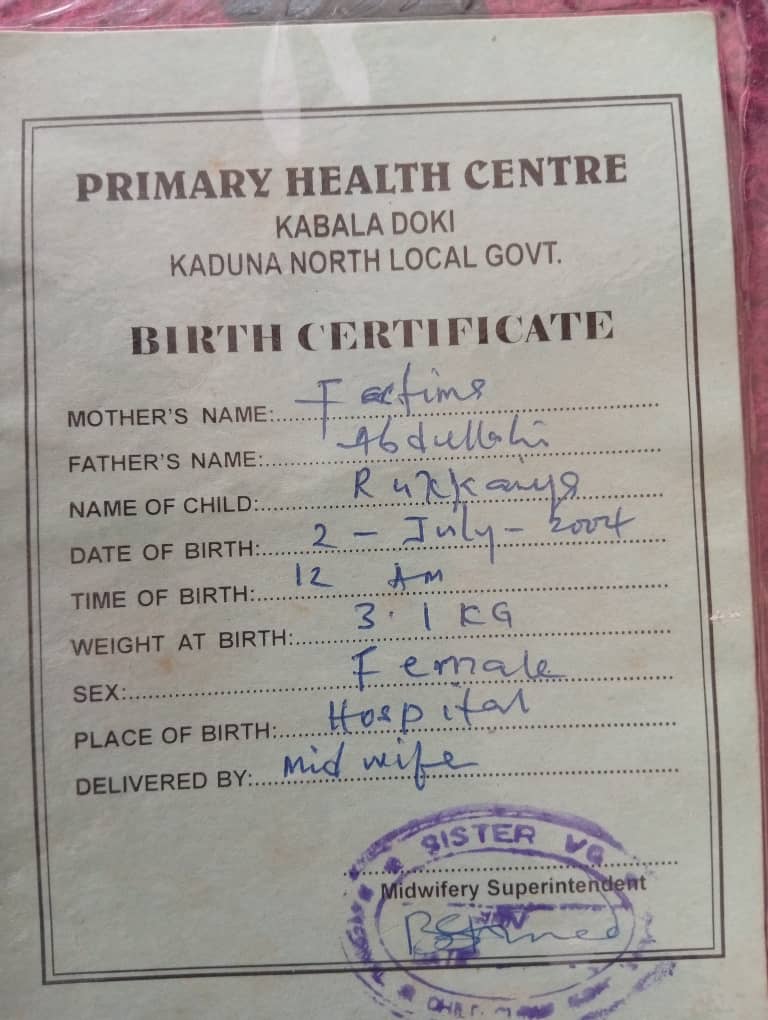 PRIMARY HEALTH CENTRE
KABALA DOKI
KADUNA NORTH LOCAL GOVT.
BIRTH CERTIFICATE
MOTHER'S NAME: Fatima
FATHER'S NAME: Abdullahi
NAME OF CHILD: Rukkaiya
DATE OF BIRTH: 2 - July - 2004
TIME OF BIRTH: 12 AM
WEIGHT AT BIRTH: 3.1 KG
SEX: Female
PLACE OF BIRTH: Hospital
DELIVERED BY: Mid wife
SISTER
Midwifery Superintendent